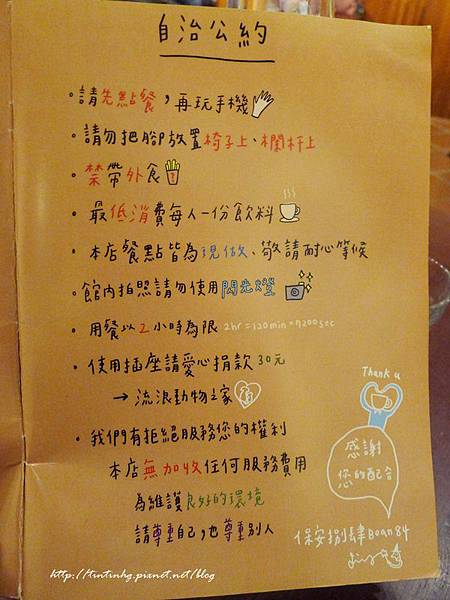 自治公約
・請先點餐，再玩手機
・請勿把腳放置椅子上、欄杆上
・禁帶外食
・最低消費每人一份飲料
・本店餐點皆為現做、敬請耐心等候
・館內拍照請勿使用閃光燈
・用餐以2小時為限 2hr=120min=7200sec
・使用插座請愛心捐款30元
→流浪動物之家
・我們有拒絕服務您的權利
本店無加收任何服務費用
為維護良好的環境
請尊重自己，也尊重別人
Thank u
感謝
您的配合
保安捌肆Boan84
http://tintinhg.pixnet.net/blog